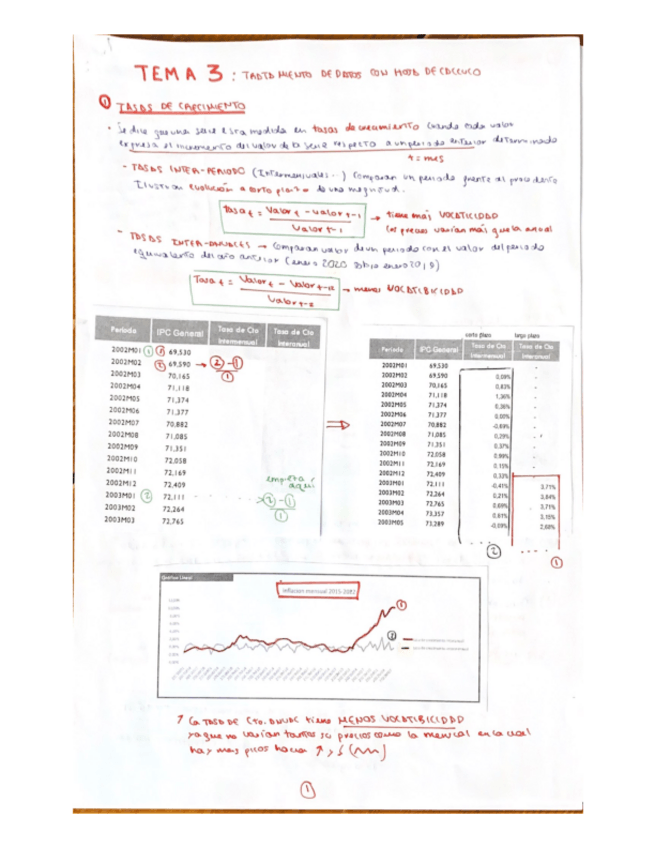 TEMA 3: TRATAMIENTO DE DATOS CON HOJA DE CÁLCULO
① TASAS DE CRECIMIENTO
• Se dice que una serie esta medida en tasas de crecimiento cuando cada valor
expresa el incremento del valor de la serie respecto a un periodo anterior determinado
t = mes
- TASAS INTER-PERIODO (Intermensuales...) Comparan un periodo frente al precedente
Ilustran evolución a corto plazo de una magnitud.
Tasa t = Valor t - Valor t-1 / Valor t-1
→ tiene más VOLATILIDAD
los precios varían más que la anual
- TASAS INTER-ANUALES → Comparan valor de un periodo con el valor del periodo
equivalente del año anterior (enero 2020 sobre enero 2019)
Tasa t = Valor t - Valor t-12 / Valor t-12 → menos VOLATIBILIDAD
Periodo IPC General Tasa de Cto Intermensual Tasa de Cto Interanual
2002M01 ① ① 69,530
2002M02 ② 69,590 → ②-① / ①
2002M03 70,165
2002M04 71,118
2002M05 71,374
2002M06 71,377
2002M07 70,882
2002M08 71,085
2002M09 71,351
2002M10 72,058
2002M11 72,169
2002M12 72,409
empieza aquí
2003M01 ② 72,111 ②-① / ①
2003M02 72,264
2003M03 72,765
⇒
corto plazo largo plazo
Periodo IPC General Tasa de Cto Intermensual Tasa de Cto Interanual
2002M01 69,530
2002M02 69,590 0,09%
2002M03 70,165 0,83%
2002M04 71,118 1,36%
2002M05 71,374 0,36%
2002M06 71,377 0,00%
2002M07 70,882 -0,69%
2002M08 71,085 0,29%
2002M09 71,351 0,37%
2002M10 72,058 0,99%
2002M11 72,169 0,15%
2002M12 72,409 0,33%
2003M01 72,111 -0,41% 3,71%
2003M02 72,264 0,21% 3,84%
2003M03 72,765 0,69% 3,71%
2003M04 73,357 0,81% 3,15%
2003M05 73,289 -0,09% 2,68%
② ①
Gráfico Lineal
Inflación mensual 2015-2022
①
②
↗ La TASA DE CTO. ANUAL tiene MENOS VOLATIBILIDAD
ya que no varían tanto su precios como la mensual en la cual
hay mas picos hacia ↑ y ↓
①